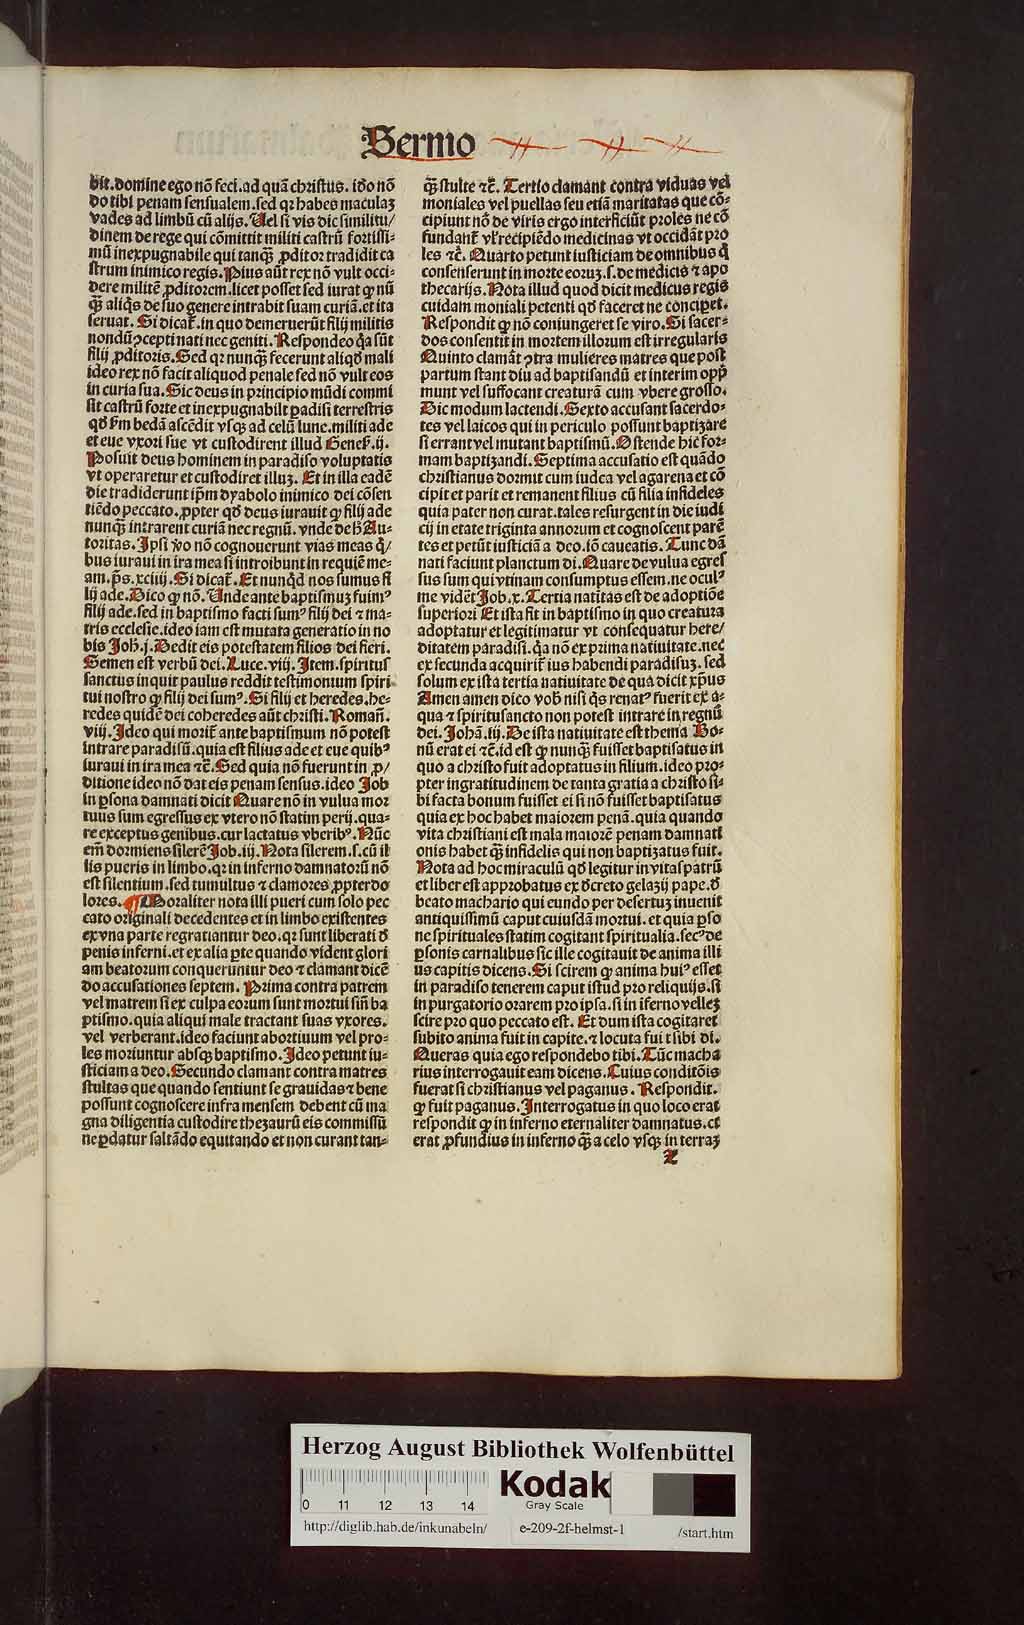 Sermo
bit. domine ego nō feci. ad quā christus. idō nō
do tibi penam sensualem. sed qꝛ habes maculaꝫ
vades ad limbū cū alijs. Uel si vis dic similitu/
dinem de rege qui cōmittit militi castrū fortissi-
mū inexpugnabile qui tanqꝫ ꝓditor tradidit ca
strum inimico regis. Pius aūt rex nō vult occi-
dere militē ꝓditorem. licet posset sed iurat ꝙ nū
qꝫ aliq̄s de suo genere intrabit suam curiā. et ita
seruat. Si dicat̄. in quo demeruerūt filij militis
nondū ꝯcepti nati nec geniti. Respondeo q̄a sūt
filij ꝓditoris. Sed qꝛ nunqꝫ fecerunt aliqd̄ mali
ideo rex nō facit aliquod penale sed nō vult eos
in curia sua. Sic deus in principio mūdi commi
sit castrū forte et inexpugnabile ꝑadisi terrestris
qd̄ ẜm bedā ascēdit vsqꝫ ad celū lune. militi ade
et eue vxori sue vt custodirent illud Geneš. ij.
Posuit deus hominem in paradiso voluptatis
vt operaretur et custodiret illuꝫ. Et in illa eadē
die tradiderunt ip̄m dyabolo inimico dei cōsen
tiēdo peccato. ꝓpter qd̄ deus iurauit ꝙ filij ade
nunqꝫ intrarent curiā nec regnū. vnde de h̄ Au-
toritas. Ipsi v̊o nō cognouerunt vias meas q̄/
bus iuraui in ira mea si introibunt in requiē me-
am. p̄s. xciiij. Si dicat̄. Et nunqd̄ nos sumus fi
lij ade. Dico ꝙ nō. Unde ante baptismuꝫ fuimꝰ
filij ade. sed in baptismo facti sumꝰ filij dei ⁊ ma-
tris ecclesie. ideo iam est mutata generatio in no
bis Joh̄. j. Dedit eis potestatem filios dei fieri.
Semen est verbū dei. Luce. viij. Item. spiritus
sanctus inquit paulus reddit testimonium spiri-
tui nostro ꝙ filij dei sumꝰ. Si filij et heredes. he-
redes quidē dei coheredes aūt christi. Romañ.
viij. Ideo qui morit̄ ante baptismum nō potest
intrare paradisū. quia est filius ade et eue quibꝰ
iuraui in ira mea ⁊c̄. Sed quia nō fuerunt in ꝓ/
ditione ideo nō dat eis penam sensus. ideo Job
in ꝑsona damnati dicit Quare nō in vulua mor
tuus sum egressus ex vtero nō statim perij. qua-
re exceptus genibus. cur lactatus vberibꝰ. Nūc
em̄ dormiens silerē Job. iij. Nota silerem. s. cū il
lis pueris in limbo. qꝛ in inferno damnatorū nō
est silentium. sed tumultus ⁊ clamores ꝓpter do
lores. ¶ Moraliter nota illi pueri cum solo pec
cato originali decedentes et in limbo existentes
ex vna parte regratiantur deo. qꝛ sunt liberati d̄
penis inferni. et ex alia ꝑte quando vident glori
am beatorum conqueruntur deo ⁊ clamant dicē
do accusationes septem. Prima contra patrem
vel matrem si ex culpa eorum sunt mortui sin̄ ba
ptismo. quia aliqui male tractant suas vxores.
vel verberant. ideo faciunt abortiuum vel pro-
les moriuntur absqꝫ baptismo. Ideo petunt iu-
sticiam a deo. Secundo clamant contra matres
stultas que quando sentiunt se grauidas ⁊ bene
possunt cognoscere infra mensem debent cū ma
gna diligentia custodire thezaurū eis commissū
ne ꝑdatur saltādo equitando et non curant tan-
qꝫ stulte ⁊c̄. Tertio clamant contra viduas vel
moniales vel puellas seu etiā maritatas que cō-
cipiunt nō de viris ergo interficiūt proles ne cō
fundant̄ vl̓ recipiēdo medicinas vt occidāt pro
les ⁊c̄. Quarto petunt iusticiam de omnibus q̄
consenserunt in morte eoruꝫ. s. de medicis ⁊ apo
thecarijs. Nota illud quod dicit medicus regis
cuidam moniali petenti qd̄ faceret ne conciperet.
Respondit ꝙ nō coniungeret se viro. Si sacer-
dos consentit in mortem illorum est irregularis
Quinto clamāt ꝯtra mulieres matres que post
partum stant diu ad baptisandū et interim oppri
munt vel suffocant creaturā cum vbere grosso.
Dic modum lactendi. Sexto accusant sacerdo-
tes vel laicos qui in periculo possunt baptizare
si errant vel mutant baptismū. Ostende hic for-
mam baptizandi. Septima accusatio est quādo
christianus dormit cum iudea vel agarena et cō
cipit et parit et remanent filius cū filia infideles
quia pater non curat. tales resurgent in die iudi
cij in etate triginta annorum et cognoscent parē
tes et petūt iusticiā a deo. iō caueatis. Tunc dā
nati faciunt planctum di. Quare de vulua egres
sus sum qui vtinam consumptus essem. ne oculꝰ
me vidēt Job. x. Tertia natitas est de adoptiōe
superiori Et ista fit in baptismo in quo creatura
adoptatur et legitimatur vt consequatur here/
ditatem paradisi. q̄a nō ex prima natiuitate. nec
ex secunda acquirit̄ ius habendi paradisuꝫ. sed
solum ex ista tertia natiuitate de qua dicit xp̄us
Amen amen dico vob̄ nisi q̄s renatꝰ fuerit ex a-
qua ⁊ spiritusancto non potest intrare in regnū
dei. Johā. iij. De ista natiuitate est thema Bo-
nū erat ei ⁊c̄. id est ꝙ nunqꝫ fuisset baptisatus in
quo a christo fuit adoptatus in filium. ideo pro-
pter ingratitudinem de tanta gratia a christo si-
bi facta bonum fuisset ei si nō fuisset baptisatus
quia ex hoc habet maiorem penā. quia quando
vita christiani est mala maiorē penam damnati
onis habet qꝫ infidelis qui non baptizatus fuit.
Nota ad hoc miraculū qd̄ legitur in vitaspatrū
et liber est approbatus ex d̄creto gelazij pape. d̄
beato machario qui eundo per desertuꝫ inuenit
antiquissimū caput cuiusdā mortui. et quia ꝑso
ne spirituales statim cogitant spiritualia. secꝰ de
ꝑsonis carnalibus sic ille cogitauit de anima illi
us capitis dicens. Si scirem ꝙ anima huiꝰ esset
in paradiso tenerem caput istud pro reliquijs. si
in purgatorio orarem pro ipsa. si in iferno velleꝫ
scire pro quo peccato est. Et dum ista cogitaret
subito anima fuit in capite. ⁊ locuta fuit sibi di.
Queras quia ego respondebo tibi. Tūc macha
rius interrogauit eam dicens. Cuius conditōis
fuerat si christianus vel paganus. Respondit.
ꝙ fuit paganus. Interrogatus in quo loco erat
respondit ꝙ in inferno eternaliter damnatus. et
erat ꝓfundius in inferno qꝫ a celo vsqꝫ in terraꝫ
Z
Herzog August Bibliothek Wolfenbüttel
Kodak
Gray Scale
0 11 12 13 14
http://diglib.hab.de/inkunabeln/ e-209-2f-helmst-1 /start.htm